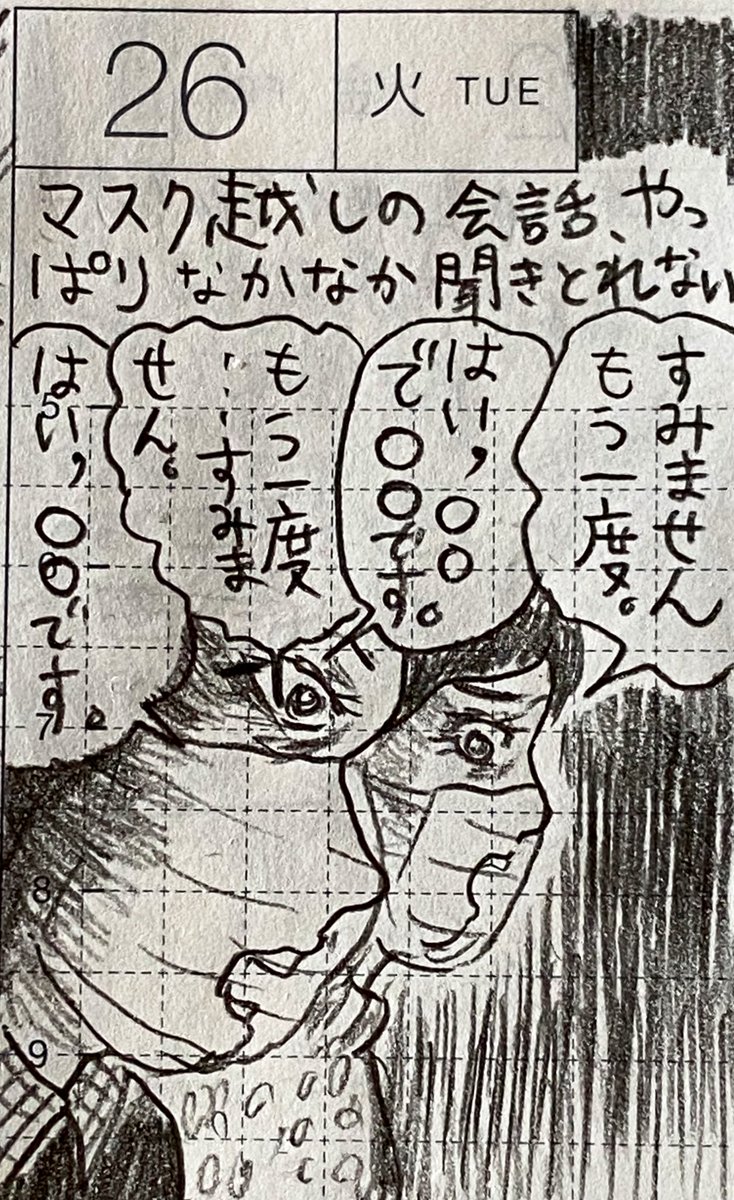 26
火 TUE
マスク越しの会話、やっ
ぱりなかなか聞きとれない
すみません
もう一度。
はい，〇〇
で〇〇です。
もう一度
……すみま
せん。
はい，〇〇です。
5
6
7
8
9